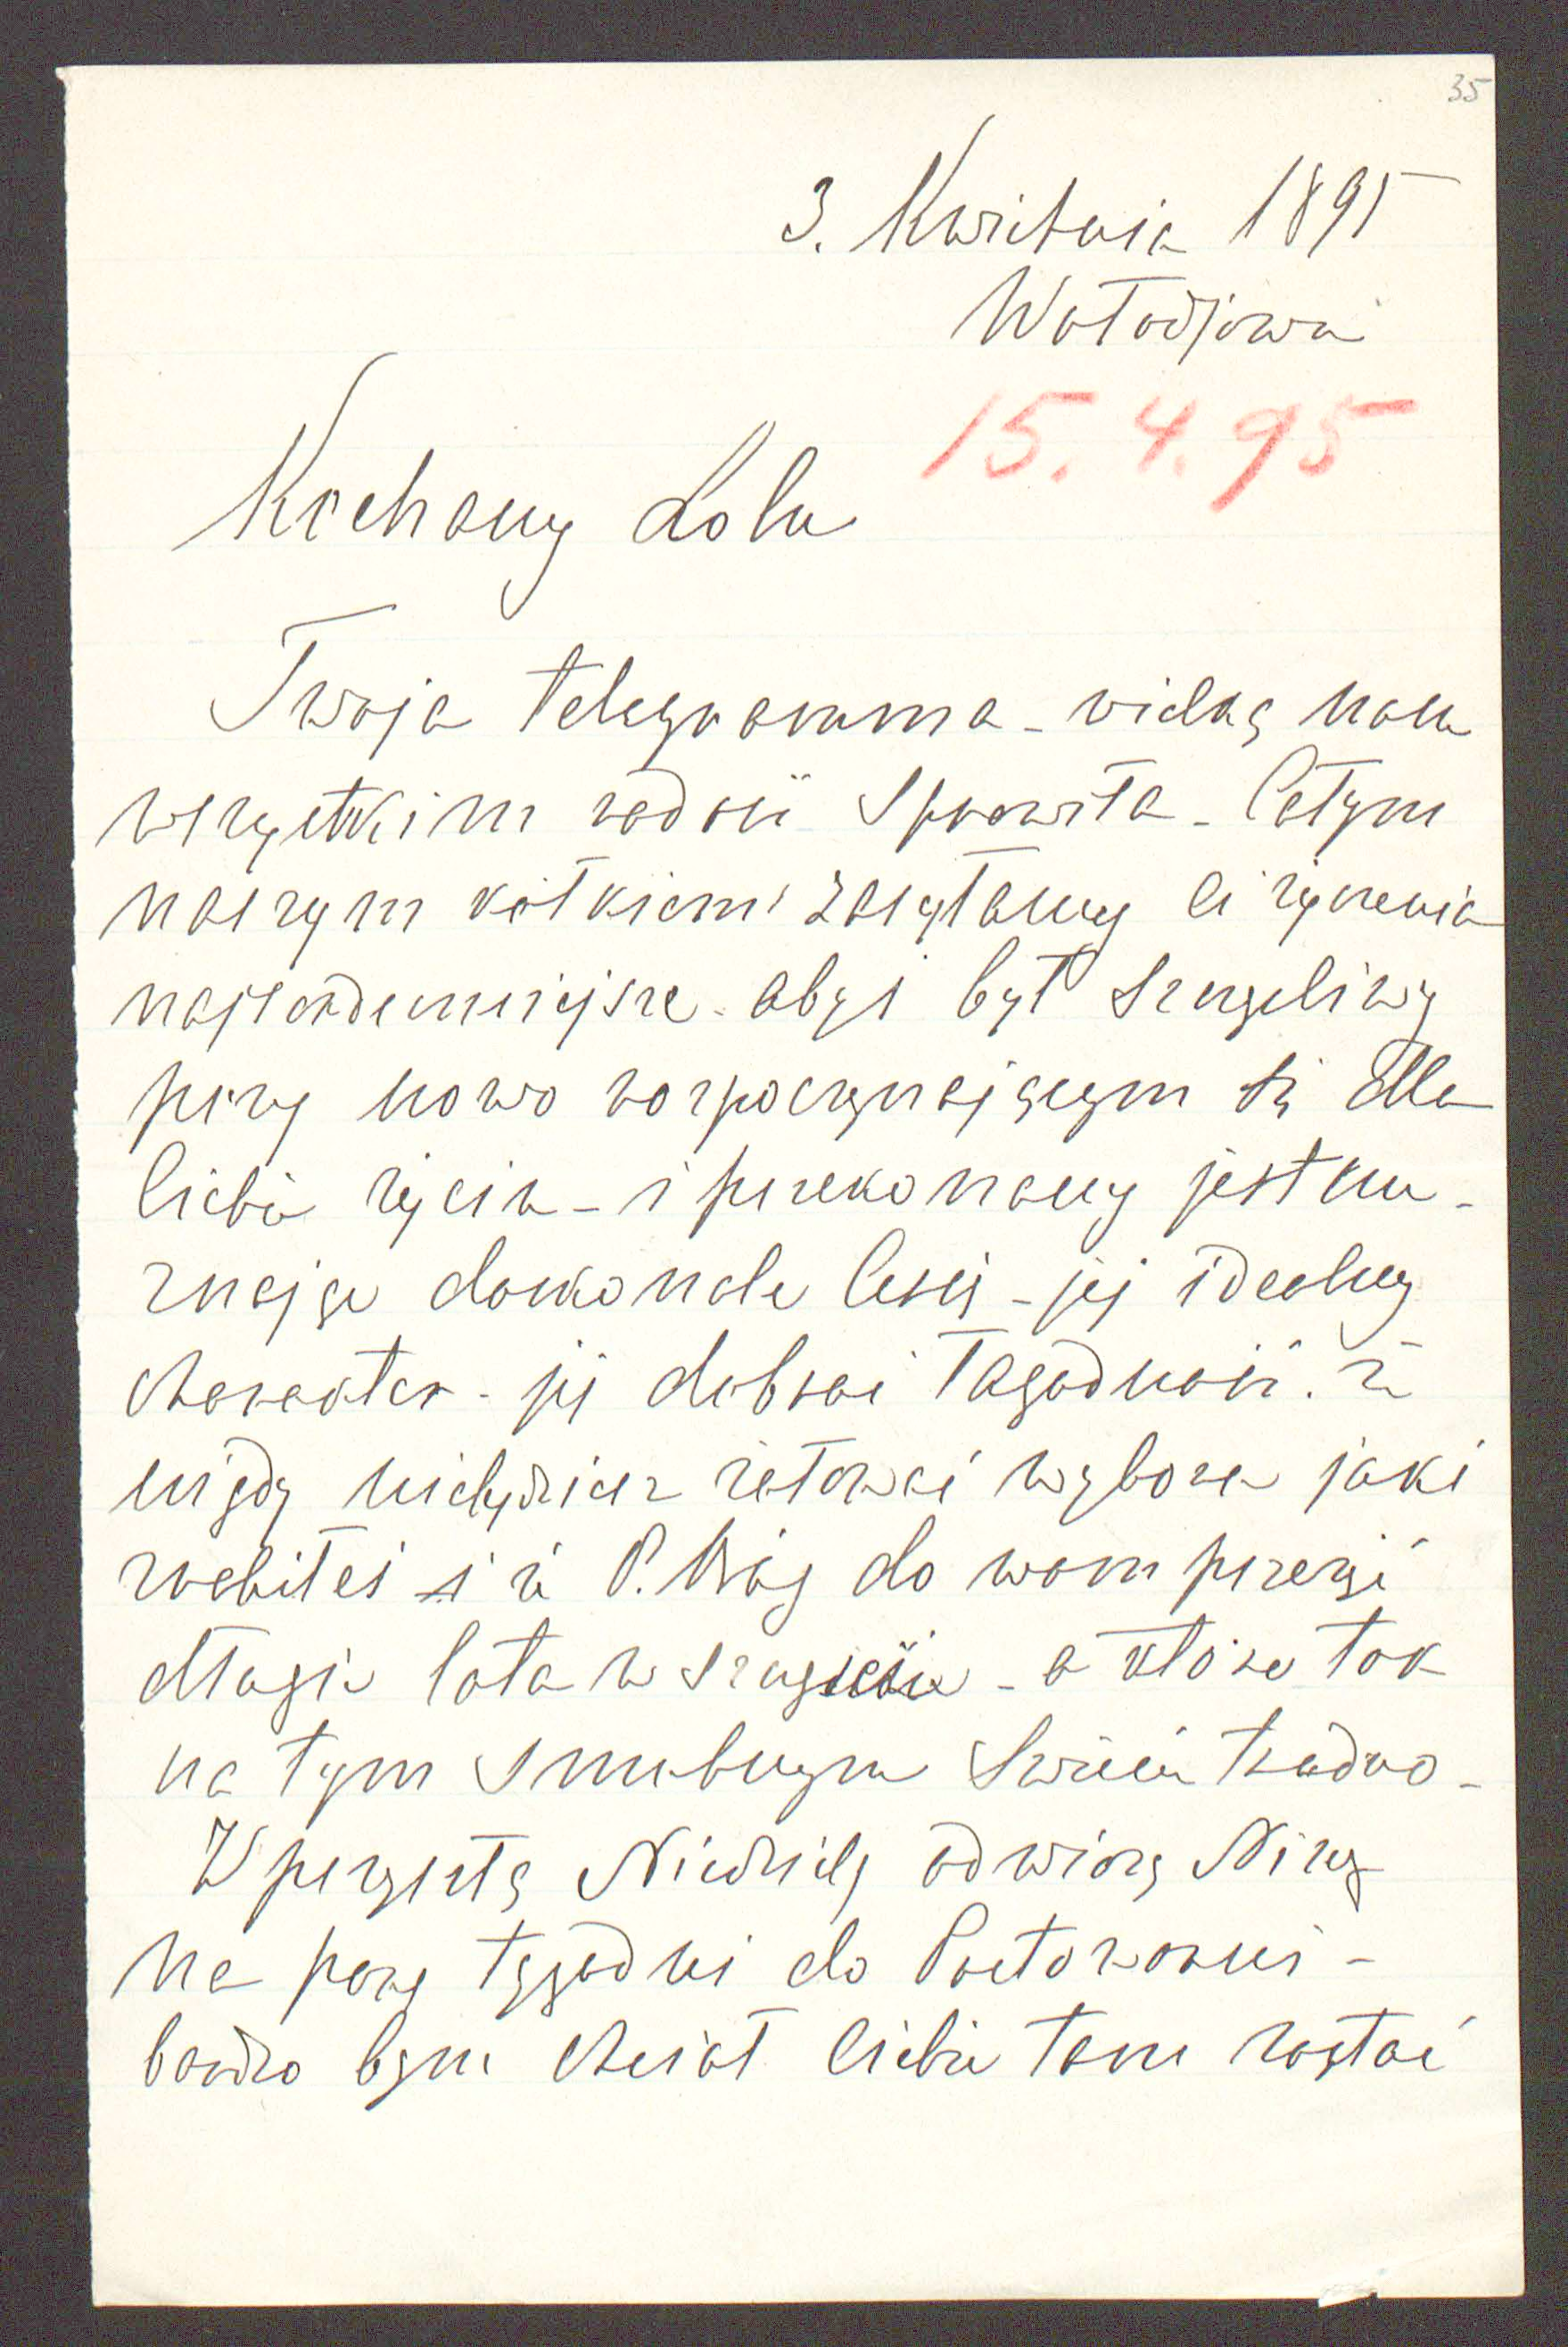 35
3. Kwietnia 1895
Wołodjowa
15.4.95
Kochany Lolu
Twoja telegramma - wielką nam
wszystkim radość sprawiła - Całym
naszym kółkiem zasyłamy Ci życzenia
najserdeczniejsze - abyś był szczęśliwy
przy nowo rozpoczynającym się dla
Ciebie życiu - i przekonany jestem -
znając doskonale Cesię - jej idealny
charakter - jej dobroć łagodność - że
nigdy nie będziesz żałować wyboru jaki
zrobiłeś i że P. Bóg da wam przeżyć
długie lata w szczęściu - o które tak
na tym smutnym świecie trudno -
W przeszłą Niedzielę odwiozę Nizię
na parę tygodni do
bardzo bym chciał Ciebie tam zastać